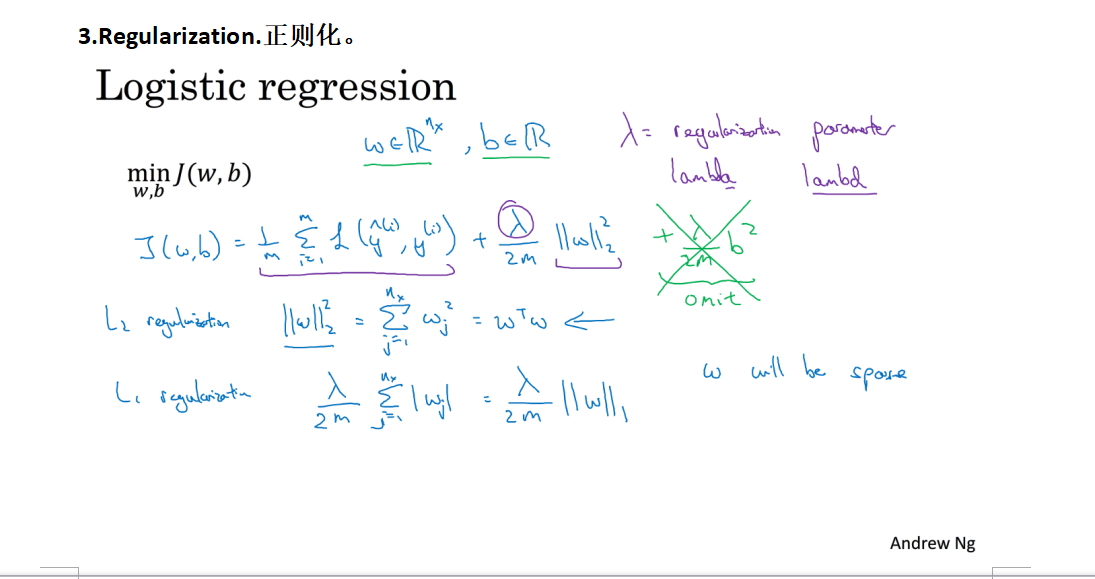 3.Regularization.正则化。
Logistic regression
w∈ℝ^{n_x}, b∈ℝ
λ = regularization parameter
lambda lambd
min J(w, b)
w,b
J(w,b) = 1/m Σ_{i=1}^{m} ℒ(ŷ^{(i)}, y^{(i)}) + λ/2m ||w||₂² + λ/2m b²
omit
L₂ regularization ||w||₂² = Σ_{j=1}^{n_x} w_j² = wᵀw ←
L₁ regularization λ/2m Σ_{j=1}^{n_x} |w_j| = λ/2m ||w||₁
w will be sparse
Andrew Ng